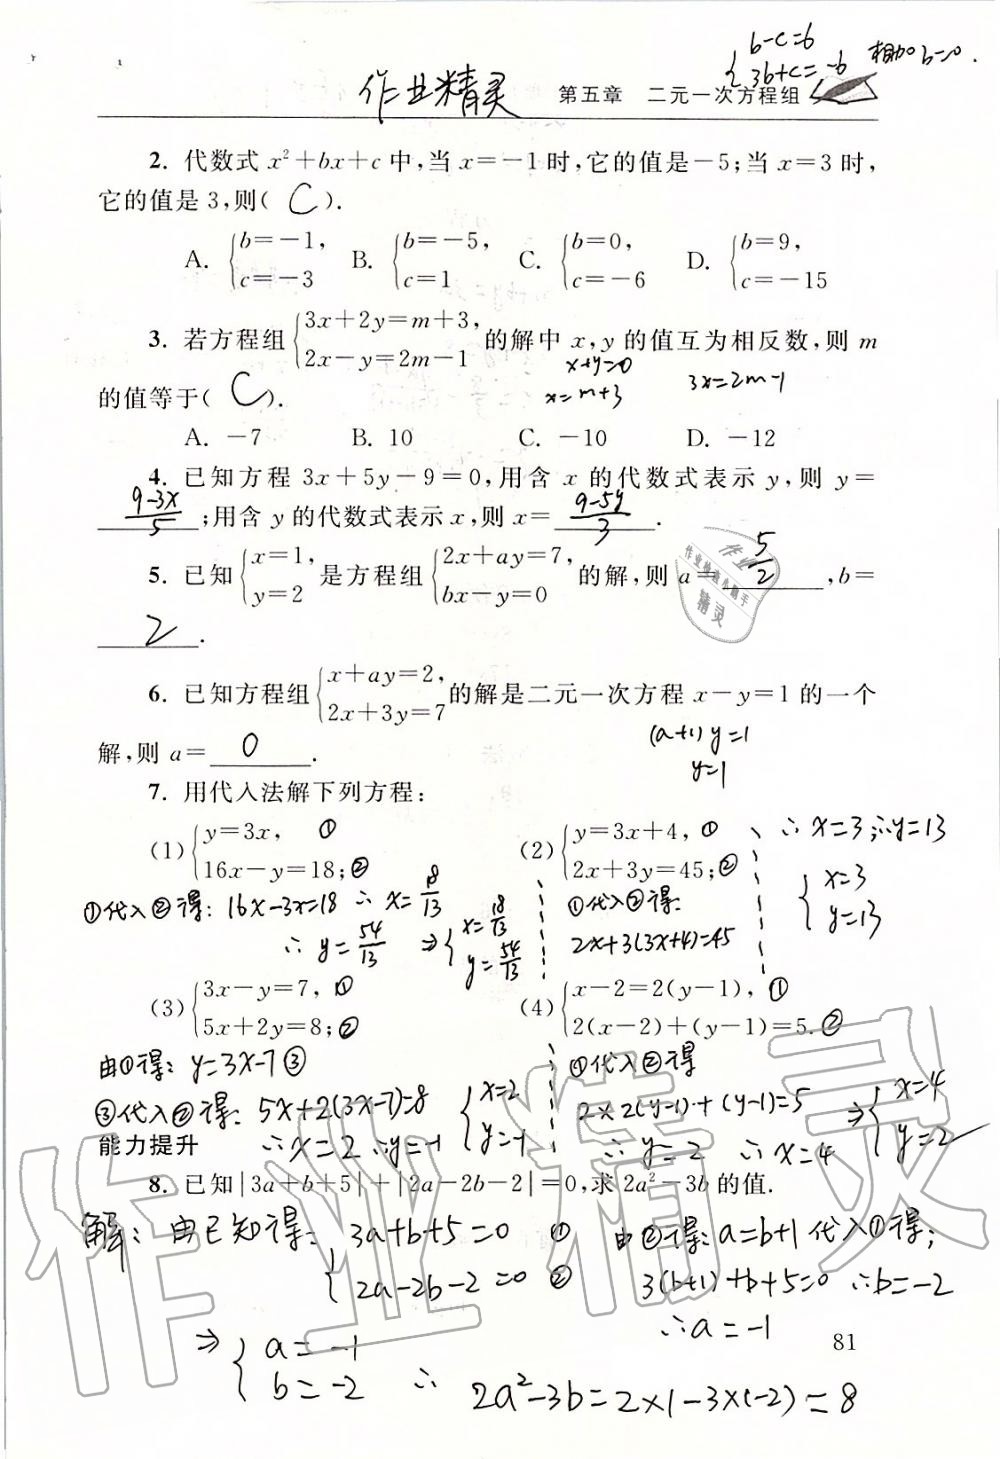 b-c=6
3b+c=-6 相加 b=0.
作业精灵 第五章 二元一次方程组
2. 代数式 x²+bx+c 中,当 x=-1 时,它的值是-5;当 x=3 时,
它的值是 3,则( C ).
A. {b=-1, c=-3 B. {b=-5, c=1 C. {b=0, c=-6 D. {b=9, c=-15
3. 若方程组{3x+2y=m+3, 2x-y=2m-1 的解中 x,y 的值互为相反数,则 m
x+y=0
x=m+3 3x=2m-1
的值等于( C ).
A. -7 B. 10 C. -10 D. -12
4. 已知方程 3x+5y-9=0,用含 x 的代数式表示 y,则 y=
(9-3x)/5 ;用含 y 的代数式表示 x,则 x= (9-5y)/3 .
5. 已知{x=1, y=2 是方程组{2x+ay=7, bx-y=0 的解,则 a= 5/2 ,b=
2 .
6. 已知方程组{x+ay=2, 2x+3y=7 的解是二元一次方程 x-y=1 的一个
解,则 a= 0 .
(a+1)y=1
y=1
7. 用代入法解下列方程:
(1) {y=3x, ① 16x-y=18;②
①代入②得: 16x-3x=18 ∴x=18/13
∴y=54/13 ⇒{x=18/13 y=54/13
(2) {y=3x+4, ① 2x+3y=45;②
①代入②得:
2x+3(3x+4)=45
∴x=3;∴y=13
{x=3 y=13
(3) {3x-y=7, ① 5x+2y=8;②
由①得: y=3x-7 ③
③代入②得: 5x+2(3x-7)=8
∴x=2 ∴y=-1 {x=2 y=-1
(4) {x-2=2(y-1), ① 2(x-2)+(y-1)=5. ②
①代入②得
2×2(y-1)+(y-1)=5
∴y=2 ∴x=4 ⇒{x=4 y=2
能力提升
8. 已知|3a+b+5|+|2a-2b-2|=0,求 2a²-3b 的值.
解: 由已知得: {3a+b+5=0 ① 2a-2b-2=0 ②
由②得: a=b+1 代入①得;
3(b+1)+b+5=0 ∴b=-2
∴a=-1
⇒{a=-1 b=-2 ∴ 2a²-3b=2×1-3×(-2)=8
81
作业精灵